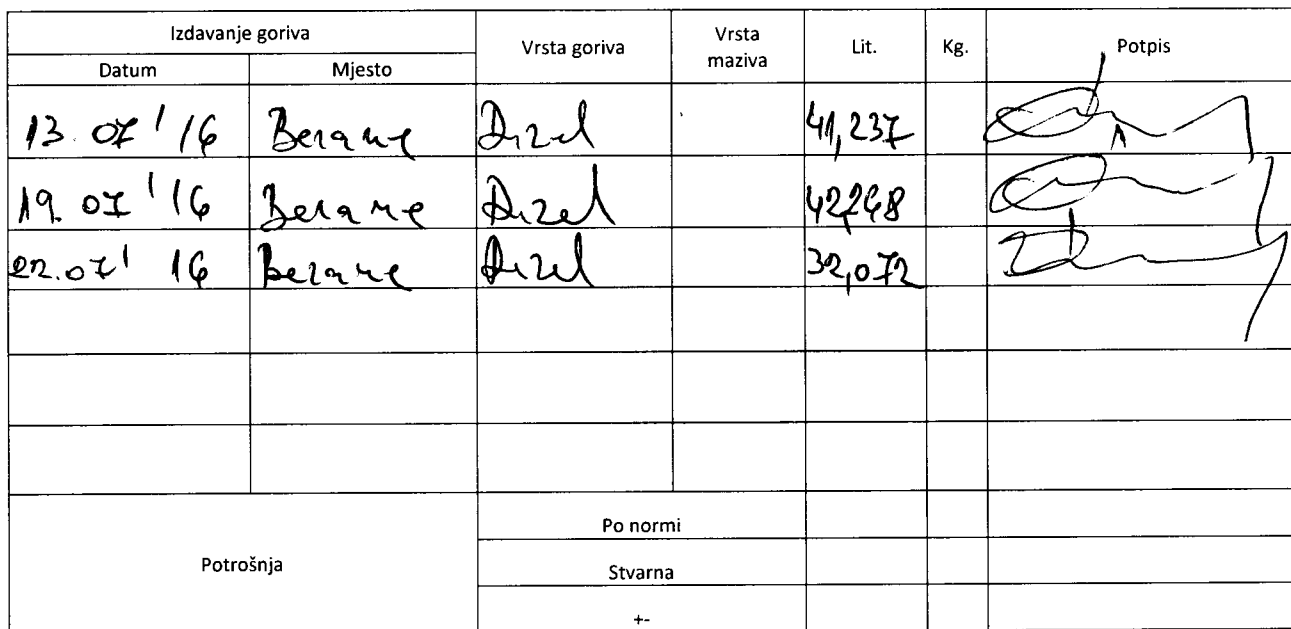 Izdavanje goriva Vrsta goriva Vrsta maziva Lit. Kg. Potpis
Datum Mjesto
13.07'16 Berane Dizel 41,237
19.07'16 Berane Dizel
22.07'16 Berane Dizel 32,072
Potrošnja
Po normi
Stvarna
+-